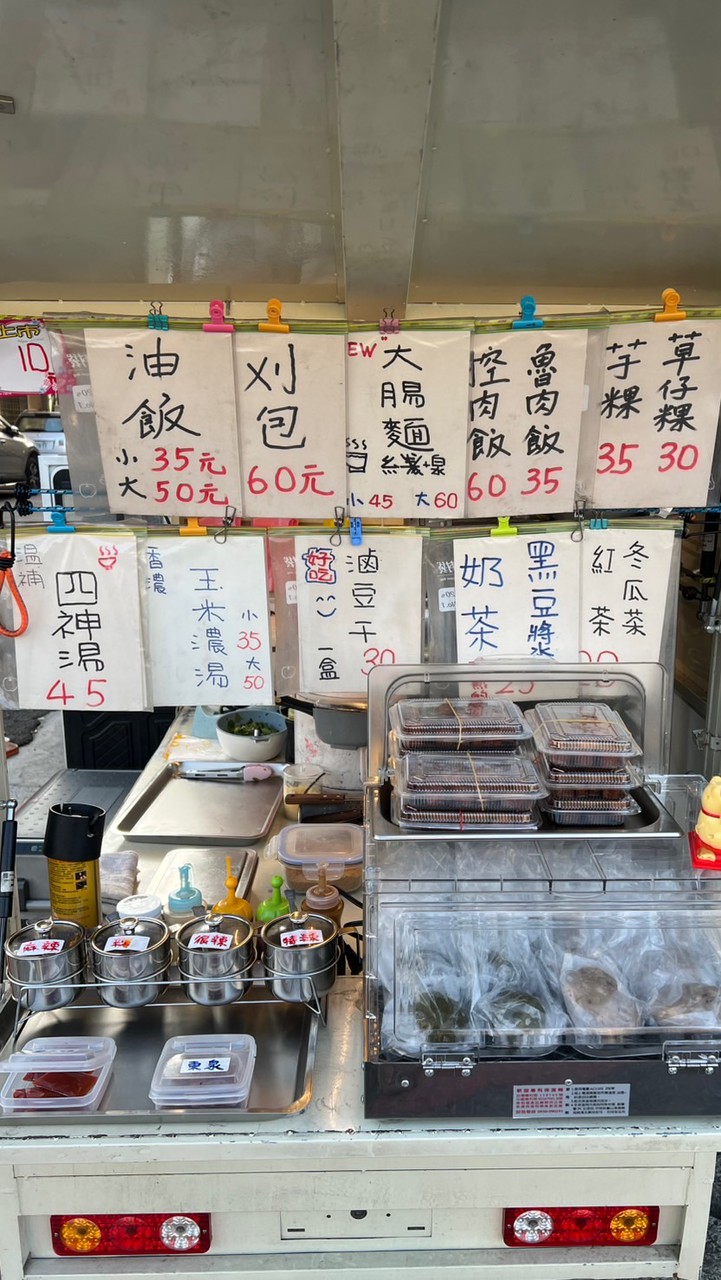 上市
10
油飯
小 35元
大 50元
刈包
60元
EW"
大腸麵線
小 45 大 60
控肉飯
60
魯肉飯
35
芋粿
35
草仔粿
30
溫補
四神湯
45
香濃
玉米濃湯
小 35
大 50
好吃
滷豆干
一盒 30
奶茶
黑豆將水
25
紅茶
冬瓜茶
麻辣
辣
很辣
特辣
東泉